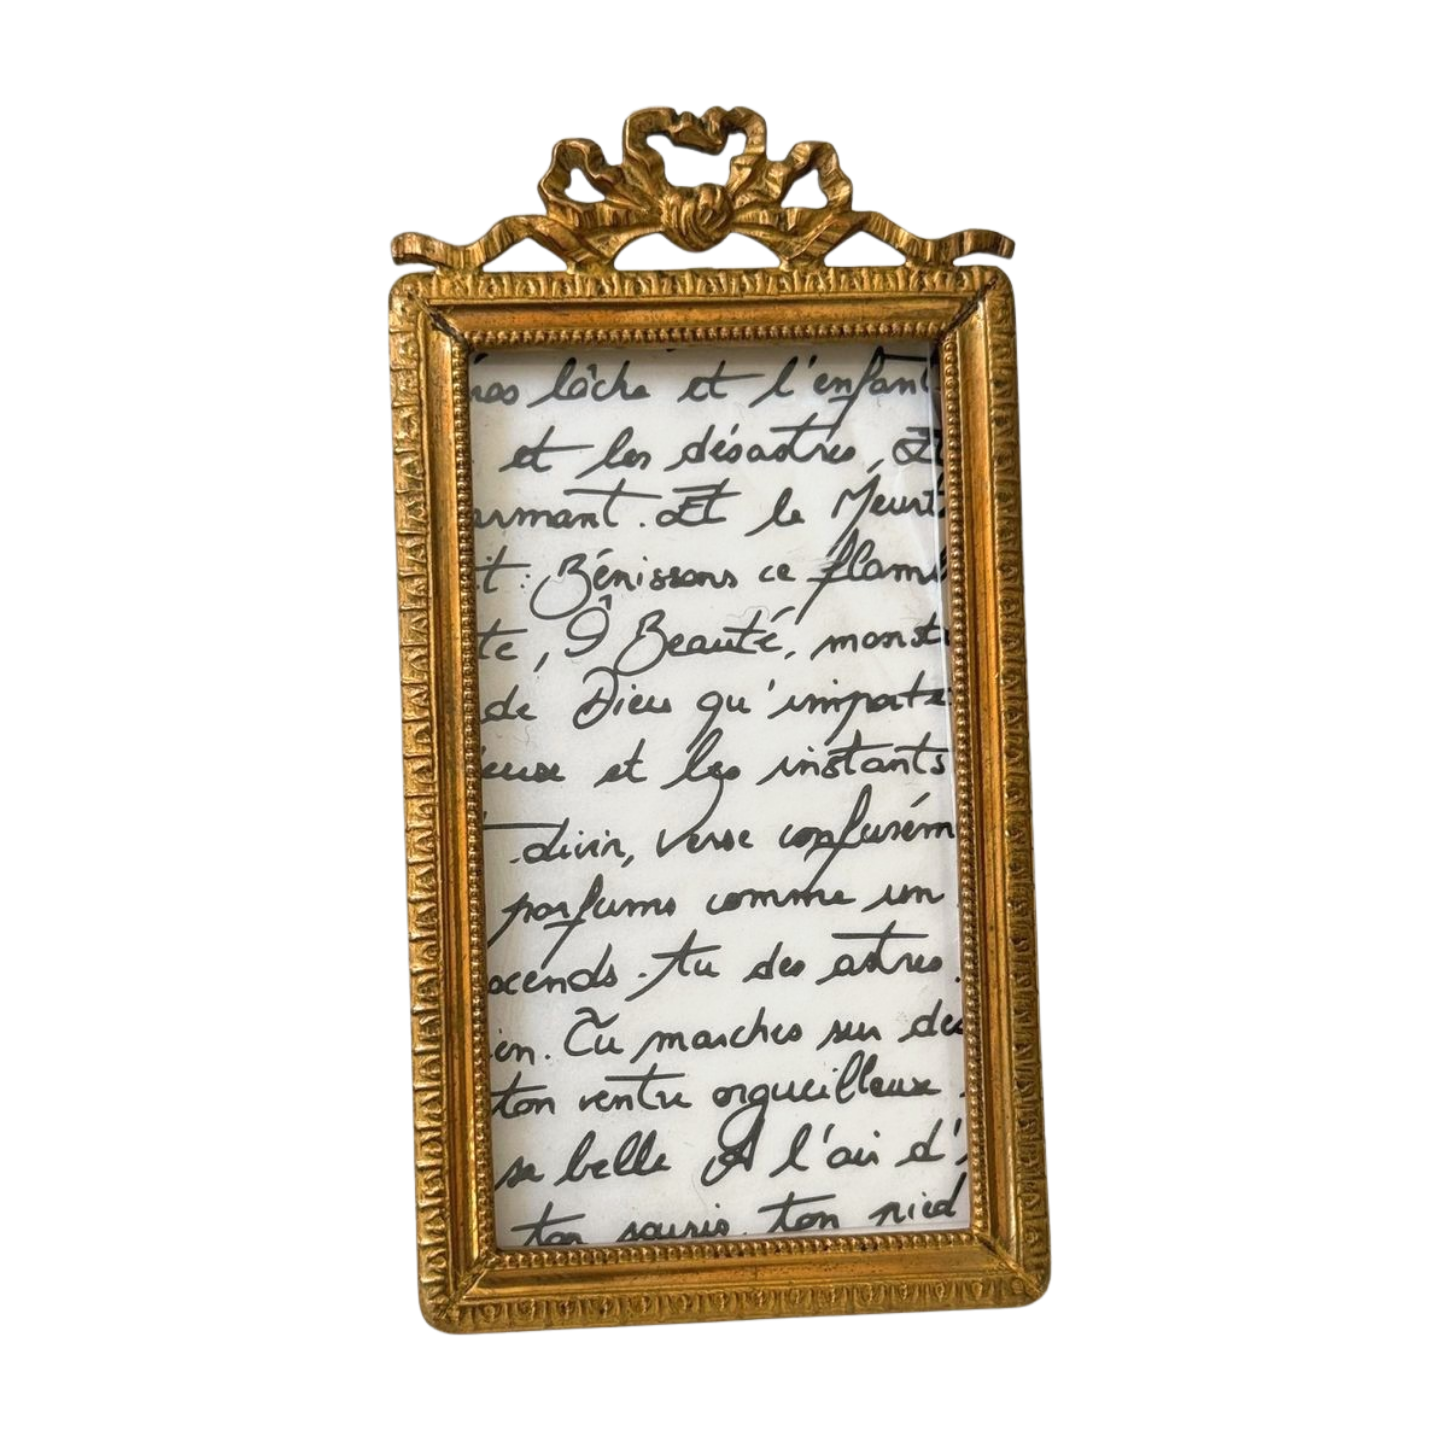 ros lâche et l'enfant
et les désastres, Et
armant. Et le Meurt
t: Bénissons ce flamb
te, Ô Beauté, monst
de Dieu qu'importe
euse et les instants
t divin, verse confusém
parfums comme un
scends-tu des astres.
en. Tu marches sur des
ton ventre orgueilleux.
se belle A l'air d'
ton souris, ton pied